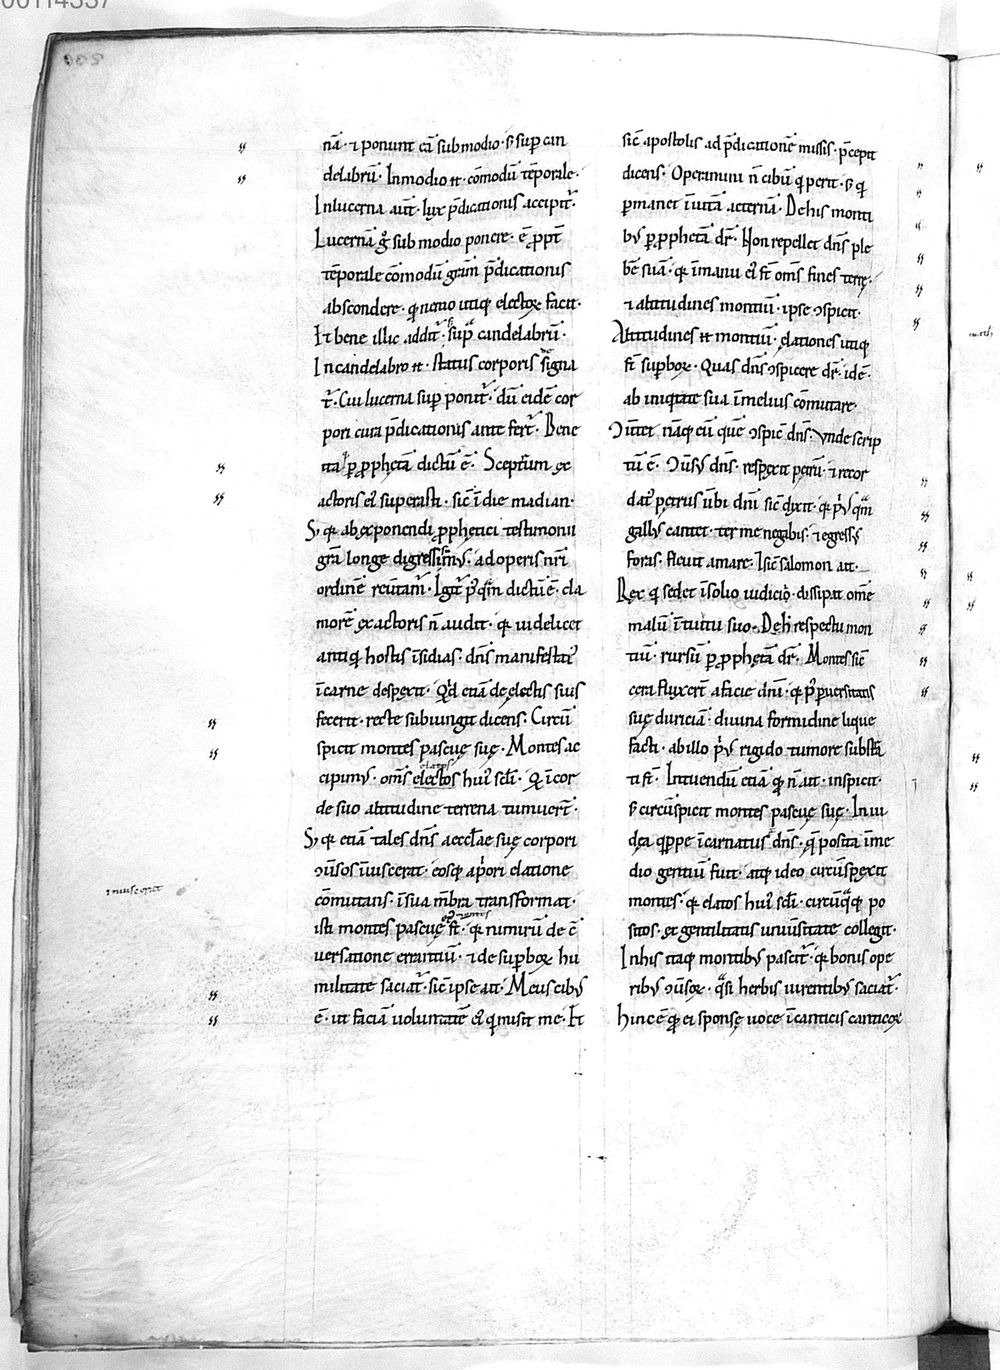 nā · ⁊ ponunt eā sub modio · s; sup can
delabrū · In modio ēt · cōmodū tēporale ·
In lucerna aut̄ · lux p̄dicationis accipit᷑ ·
Lucernā g̊ sub modio ponere · ē ꝓpt̄
tēporale cōmodū gr̄am p̄dicationis
abscondere · qđ nemo utiq; electoꝝ facit ·
Et bene illic addit᷑ · sup candelabrū ·
In candelabro ēt · status corporis signa
t᷑ · Cui lucerna sup ponit᷑ · dū eidē cor
pori cura p̄dicationis ante fert᷑ · Bene
ita ꝑ ꝓphetā dictū ē · Sceptrum ex
actoris ei᷒ superasti · sic̄ ī die madian ·
S; qa ab exponendi ꝓphetici testimonii
gr̄a longe digressi sum᷒ · ad operis nr̄i
ordinē reūtam᷑ · Igit᷑ p᷒ q̄m dictū ē · cla
morē exactoris n̄ audit · qa uidelicet
antiqi hostis īsidias · dn̄s manifestat᷒
ī carne despexit · Qđ etiā de electis suis
fecerit · recte subiungit dicens · Circū
spicit montes pascuę suę · Montes ac
cipim᷒ · om̄s electos hui᷒ sc̄li · Qi ī cor
elatos
de suo altitudine terrena tumuer̄t ·
S; qa etiā tales dn̄s aeccl̄ae suę corpori
ꝯūsos ūuiscerat · eosq; a p̄ori elatione
⁊ inuiscerat
cōmutans · ī sua m̄bra transformat ·
isti montes pascuę ei᷒ st̄ · qa nimirū de ē
uersatione errantiū · ⁊ de supboꝝ hu
militate saciat᷑ · sic̄ ipse ait · Meus cib᷒
ē · ut faciā uoluntatē ei᷒ qi misit me · Et
sic̄ apostolis ad p̄dicationē missis · p̄cepit
dicens · Operamini n̄ cibū qi perit · s; qi
ꝑmanet ī uitā aeternā · De his monti
b᷒ ꝑ ꝓphetā dr̄ · Non repellet dn̄s ple
bē suā · qa ī manu ei᷒ st̄ om̄s fines terrę ·
⁊ altitudines montiū · ipse ꝯspicit ·
Altitudines ēt montiū · elationes utiq;
st̄ supboꝝ · Quas dn̄s ꝯspicere dr̄ · id ē ·
ab iniqitate sua ī melius cōmutare ·
Ꝯūtet nāq; eū quē ꝯspic̄ dn̄s · Vnde scrip
tū ē · Ꝯūs᷒ dn̄s · respexit petrū · ⁊ recor
dat᷒ petrus ūbi dn̄i sic̄ dixit · qa pr᷒ qam
gall᷒ cantet · ter me negabis · ⁊ egress᷒
foras · fleuit amare · Hīc salomon ait ·
Rex qi sedet ī solio iudicij · dissipat om̄e
malū ī tuitu suo · De h; respectu mon
tiū · rursū ꝑ ꝓphetā dr̄ · Montes sic̄
cera fluxer̄t a facie dn̄i · qa p᷒ ꝑuersitatis
suę duriciā · diuina formidine lique
facti · ab illo pr᷒ rigido tumore subst̄ā
ti st̄ · Intuendū etiā qđ n̄ ait · inspicit ·
s; circūspicit montes pascuę suę · In iu
dęa qippe īcarnatus dn̄s · qę posita ī me
dio gentiū fuit · atq; ideo circūspexit
montes · qa elatos hui᷒ sc̄li · circūqaq; po
sitos · ex gentilitatis uniūsitate collegit ·
In his itaq; montib᷒ pascit᷑ · qa bonis ope
rib᷒ ꝯūsoꝝ · qasi herbis uirentib᷒ saciat᷑ ·
hinc ē qđ ei sponsę uoce ī canticis canticoꝝ